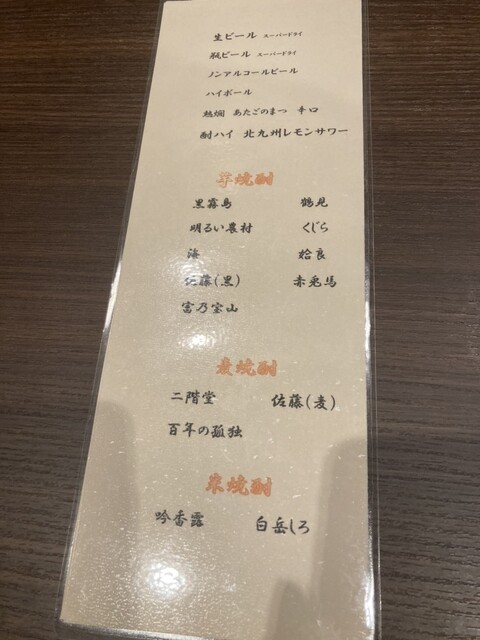 生ビール スーパードライ
瓶ビール スーパードライ
ノンアルコールビール
ハイボール
熱燗 あたごのまつ 辛口
酎ハイ 北九州レモンサワー
芋焼酎
黒霧島 鶴見
明るい農村 くじら
海 姶良
佐藤(黒) 赤兎馬
富乃宝山
麦焼酎
二階堂 佐藤(麦)
百年の孤独
米焼酎
吟香露 白岳しろ